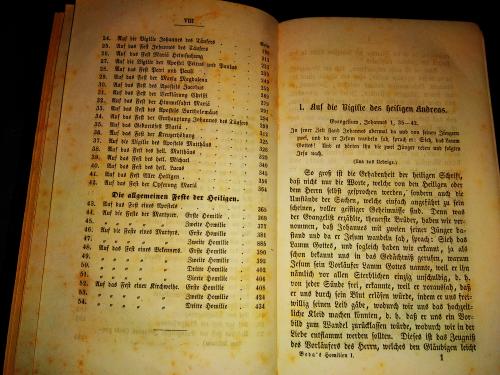 VIII
Seite
24. Auf die Vigilie Johannes des Täufers
25. Auf das Fest Johannes des Täufers
26. Auf das Fest Mariä Heimsuchung
27. Auf die Vigilie der Apostel Petrus und Paulus
28. Auf das Fest Petri und Pauli
29. Auf das Fest der Maria Magdalena
30. Auf das Fest des Apostels Jacobus
31. Auf das Fest der Verklärung Christi
32. Auf das Fest der Himmelfahrt Mariä
33. Auf das Fest des Apostels Bartholomäus
34. Auf das Fest der Enthauptung Johannes des Täufers
35. Auf das Geburtsfest Mariä
36. Auf das Fest der Kreuzerhöhung
37. Auf die Vigilie des Apostels Matthäus
38. Auf das Fest des heil. Matthäus
39. Auf das Fest des heil. Michael
40. Auf das Fest des heil. Lucas
41. Auf das Fest Aller Heiligen
42. Auf das Fest der Opferung Mariä 364
Die allgemeinen Feste der Heiligen.
43. Auf das Fest eines Apostels 368
44. Auf die Feste der Martyrer. Erste Homilie 375
45. " " " " Zweite Homilie 377
46. Auf die Feste eines Martyrers. Erste Homilie
47. " " " " Zweite Homilie 385
48. Auf das Fest eines Bekenners. Erste Homilie 390
49. " " " " Zweite Homilie 396
50. " " " " Dritte Homilie 402
51. " " " " Vierte Homilie 408
52. Auf das Fest einer Kirchweihe. Erste Homilie
53. " " " " Zweite Homilie 424
54. " " " " Dritte Homilie 434
I. Auf die Vigilie des heiligen Andreas.
Evangelium, Johannes 1, 35—42.
In jener Zeit stand Johannes abermal da und von seinen Jüngern
zwei, und da er Jesum wandeln sah, sprach er: Sieh, das Lamm
Gottes! Und es hörten die zwei Jünger ihn reden und folgten
Jesu nach.
(Und das Uebrige.)
So groß ist die Erhabenheit der heiligen Schrift,
daß nicht nur die Worte, welche von den Heiligen oder
dem Herrn selbst gesprochen werden, sondern auch die
Umstände der Sachen, welche einfach angeführt zu sein
scheinen, voller geistiger Geheimnisse sind. Denn was
der Evangelist erzählte, theuerste Brüder, haben wir ver-
nommen, daß Johannes mit zweien seiner Jünger da-
stand und da er Jesum wandeln sah, sprach: Sieh das
Lamm Gottes, und sogleich haben wir erkannt, ja als
schon bekannt uns in das Gedächtniß gerufen, warum
Jesum sein Vorläufer Lamm Gottes nannte, weil er ihn
nämlich vor allen Sterblichen einzig unschuldig, d. h.
von jeder Sünde frei, erkannte, weil er voraussah, daß
er uns durch sein Blut erlösen würde, indem er uns frei-
willig seinen Leib gäbe, wodurch wir uns das hochzeit-
liche Kleid machen könnten, d. h. daß er uns ein Vor-
bild zum Wandel zurücklassen würde, wodurch wir in der Liebe
entflammt werden sollten. Dieses ist das Zeugniß
des Vorläufers des Herrn, welches den Gläubigen leicht
Beda's Homilien I. 1